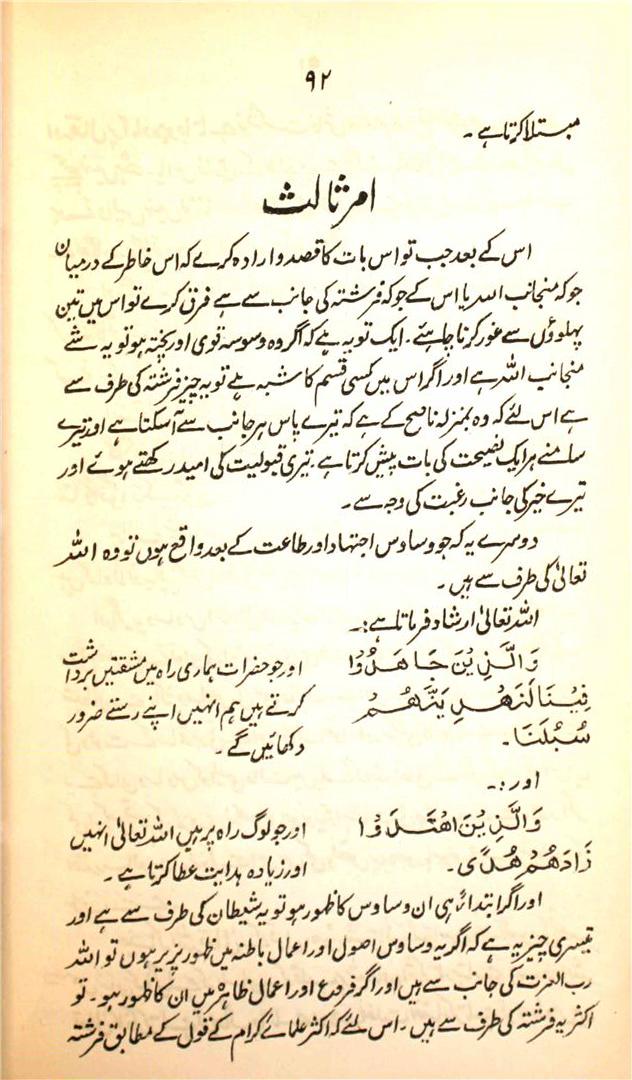 ۹۲
مبتلا کرتا ہے۔
امر ثالث
اس کے بعد جب تو اس بات کا قصد و ارادہ کرے کہ اس خاطر کے درمیان
جو کہ منجانب اللہ یا اس کے جو کہ فرشتہ کی جانب سے ہے فرق کرے تو اس میں تین
پہلوؤں سے غور کرنا چاہئے۔ ایک تو یہ ہے کہ اگر وہ وسوسہ قوی اور پختہ ہو تو یہ شے
منجانب اللہ ہے اور اگر اس میں کسی قسم کا شبہ ہے تو یہ چیز فرشتہ کی طرف سے
ہے اس لئے کہ وہ بمنزلہ ناصح کے ہے کہ تیرے پاس ہر جانب سے آسکتا ہے اور تیرے
سامنے ہر ایک نصیحت کی بات پیش کرتا ہے۔ تیری قبولیت کی امید رکھتے ہوئے اور
تیرے خیر کی جانب رغبت کی وجہ سے۔
دوسرے یہ کہ جو وساوس اجتہاد اور طاعت کے بعد واقع ہوں تو وہ اللہ
تعالیٰ کی طرف سے ہیں۔
اللہ تعالیٰ ارشاد فرماتا ہے:۔
وَالَّذِيْنَ جَاهَدُوْا
فِيْنَا لَنَهْدِيَنَّهُمْ
سُبُلَنَا۔
اور جو حضرات ہماری راہ میں مشقتیں برداشت
کرتے ہیں ہم انہیں اپنے رستے ضرور
دکھائیں گے۔
اور:۔
وَالَّذِيْنَ اهْتَدَوْا
زَادَهُمْ هُدًى۔
اور جو لوگ راہ پر ہیں اللہ تعالیٰ انہیں
اور زیادہ ہدایت عطا کرتا ہے۔
اور اگر ابتداءً ہی ان وساوس کا ظہور ہو تو یہ شیطان کی طرف سے ہے اور
تیسری چیز یہ ہے کہ اگر یہ وساوس اصول اور اعمال باطنہ میں ظہور پزیر ہوں تو اللہ
رب العزت کی جانب سے ہیں اور اگر فروع اور اعمال ظاہرہ میں ان کا ظہور ہو۔ تو
اکثر یہ فرشتہ کی طرف سے ہیں۔ اس لئے کہ اکثر علمائے کرام کے قول کے مطابق فرشتہ